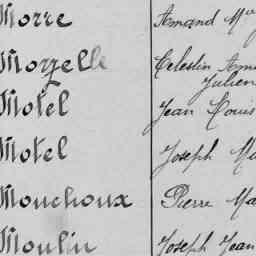 Morre Armand
Mozzelle Célestin
Julien
Motel Jean Louis
Motel Joseph
Mouchoux Pierre
Moulin Joseph Jean